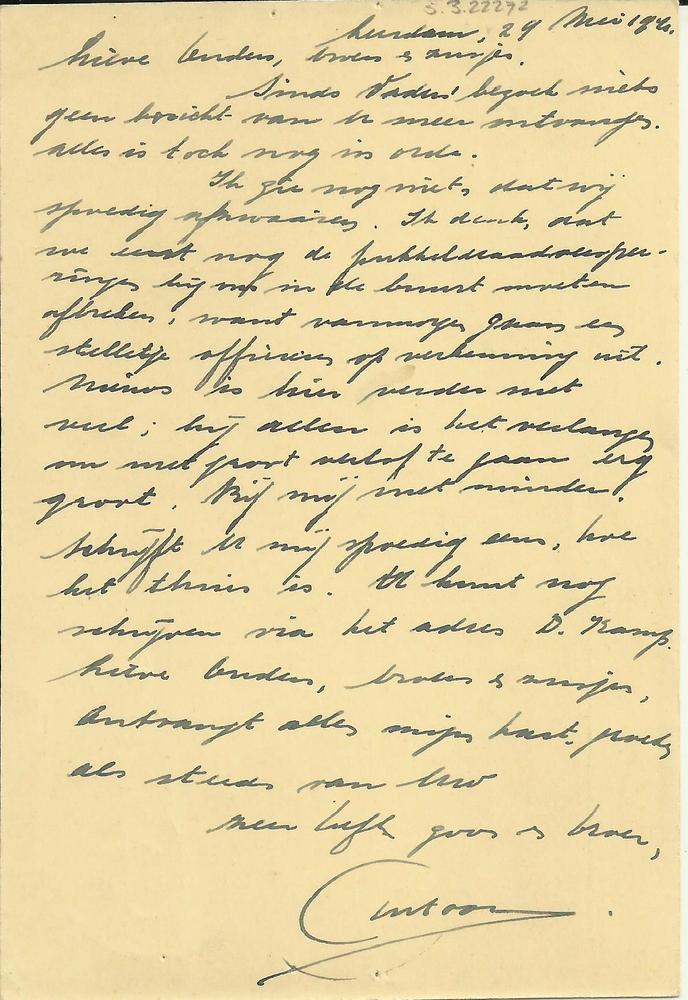 S.3.22272
Leusden, 29 Mei 1940.
Lieve Ouders, broers & zusjes.
Sinds Vaders' bezoek niets
geen bericht van U meer ontvangen.
alles is toch nog in orde.
Ik zie nog niets, dat wij
spoedig afzwaaien. Ik denk, dat
we eerst nog de prikkeldraadversper-
ringen bij ons in de buurt moeten
afbreken, want vanmorgen gaan een
stelletje officieren op verkenning uit.
Nieuws is hier verder niet
veel; bij allen is het verlangen
om met groot verlof te gaan erg
groot. Bij mij niet minder.
Schrijft U mij spoedig eens, hoe
het thuis is. U kunt nog
schrijven via het adres D. Kamp.
Lieve Ouders, broers & zusjes,
Ontvangt allen mijn hart. groeten
als steeds van Uw
liefh. zoon & broer,
Antoon.